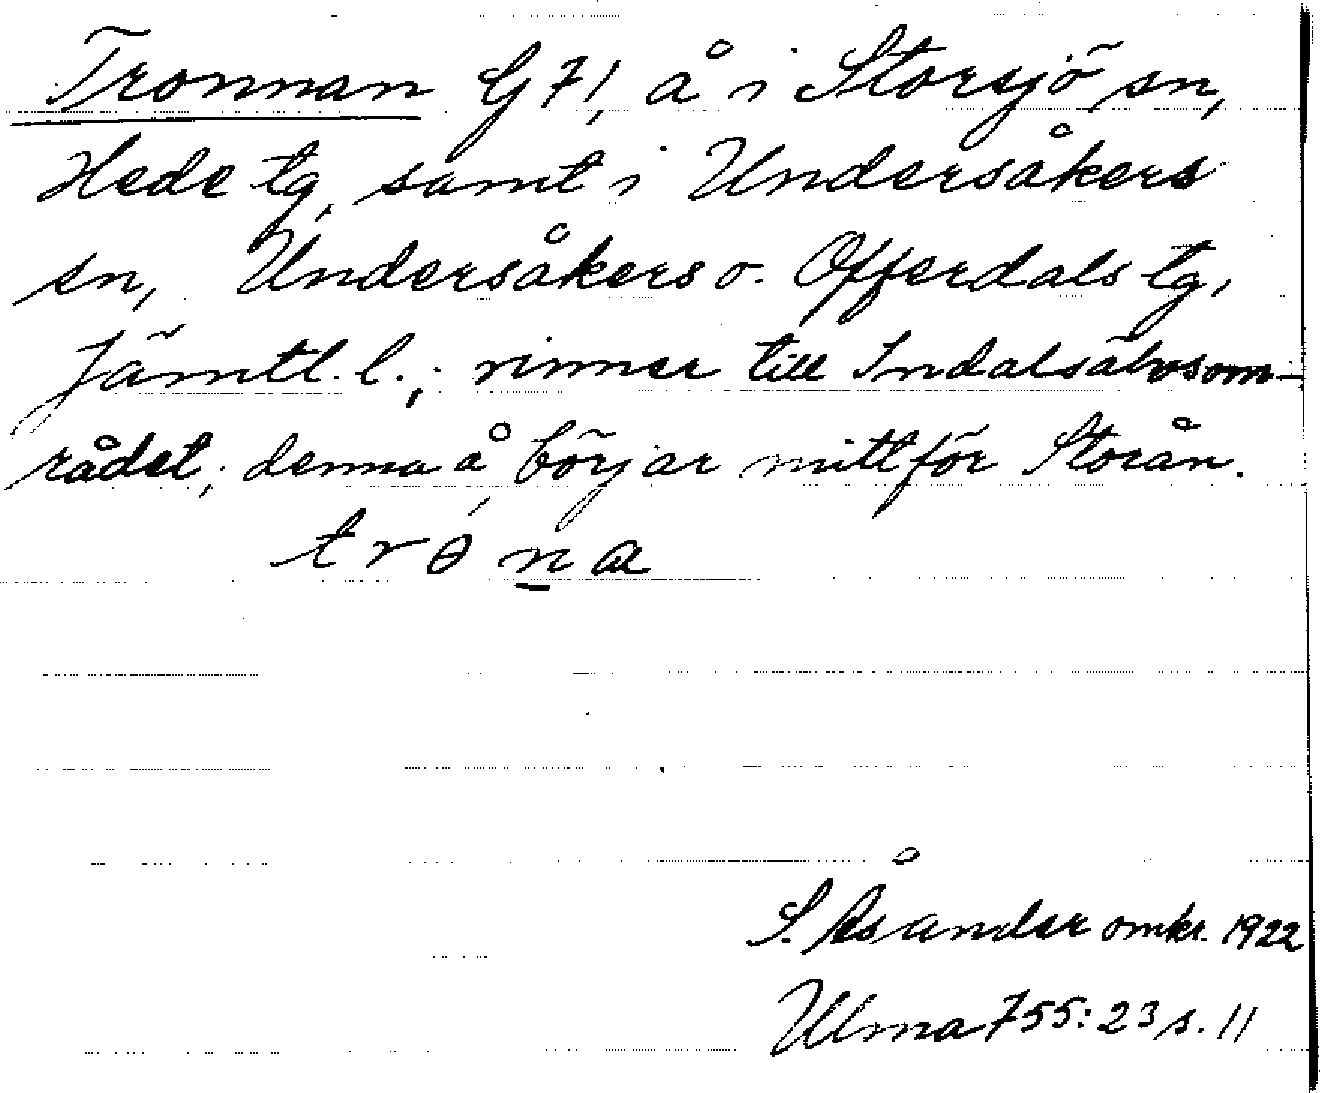 Tronnan G71, å i Storsjö sn,
Hede tg, samt i Undersåkers
sn, Undersåkers o. Offerdals tg,
Jämtl. l.; rinner till Indalsälvsom-
rådet; denna å börjar mittför Storån.
tróna
S. Åsander omkr. 1922
Ulma 755:23 s. 11